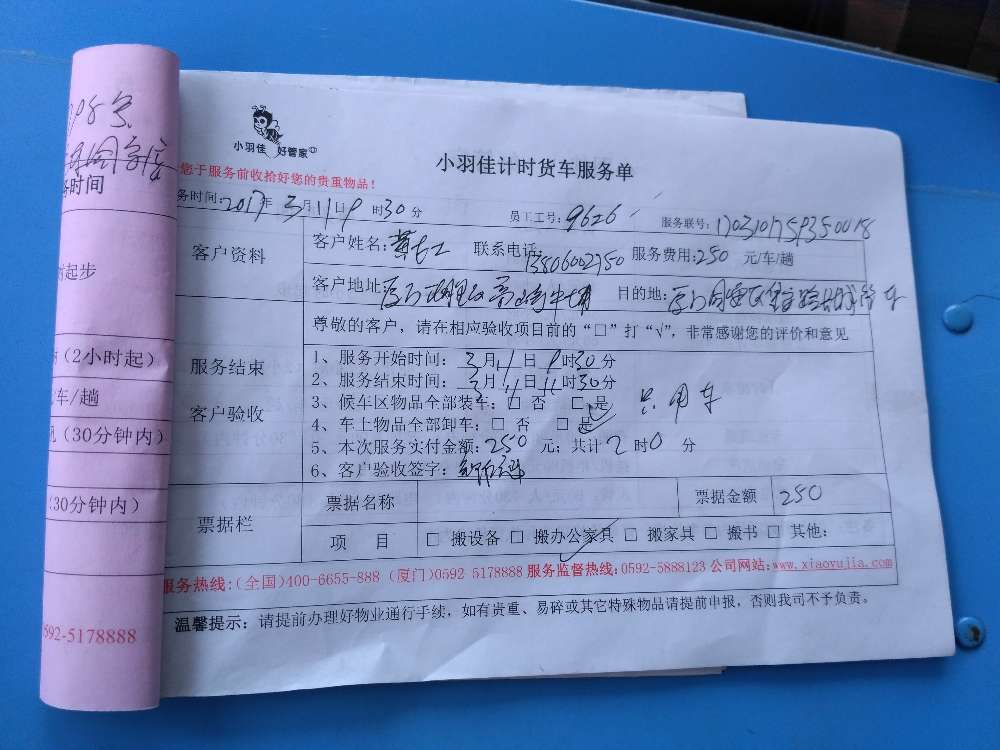 小羽佳 好管家
小羽佳计时货车服务单
您于服务前收拾好您的贵重物品！
务时间：2017年3月11日9时30分 员工工号：9626 服务联号：
客户资料
客户姓名： 联系电话：13806002750 服务费用：250元/车/趟
客户地址： 目的地：
尊敬的客户，请在相应验收项目前的“□”打“√”，非常感谢您的评价和意见
服务结束
客户验收
1、服务开始时间：3月11日9时30分
2、服务结束时间：3月11日11时30分
3、候车区物品全部装车：□ 否 □ 是 只用车
4、车上物品全部卸车：□ 否 □ 是
5、本次服务实付金额：250元；共计2时0分
6、客户验收签字：
票据栏
票据名称 票据金额 250
项 目 □ 搬设备 □ 搬办公家具 □ 搬家具 □ 搬书 □ 其他：
服务热线：（全国）400-6655-888（厦门）0592 5178888 服务监督热线：0592-5888123 公司网站：www.xiaoyujia.com
温馨提示：请提前办理好物业通行手续，如有贵重、易碎或其它特殊物品请提前申报，否则我司不予负责。
时间
起步
（2小时起）
车/趟
（30分钟内）
（30分钟内）
0592-5178888